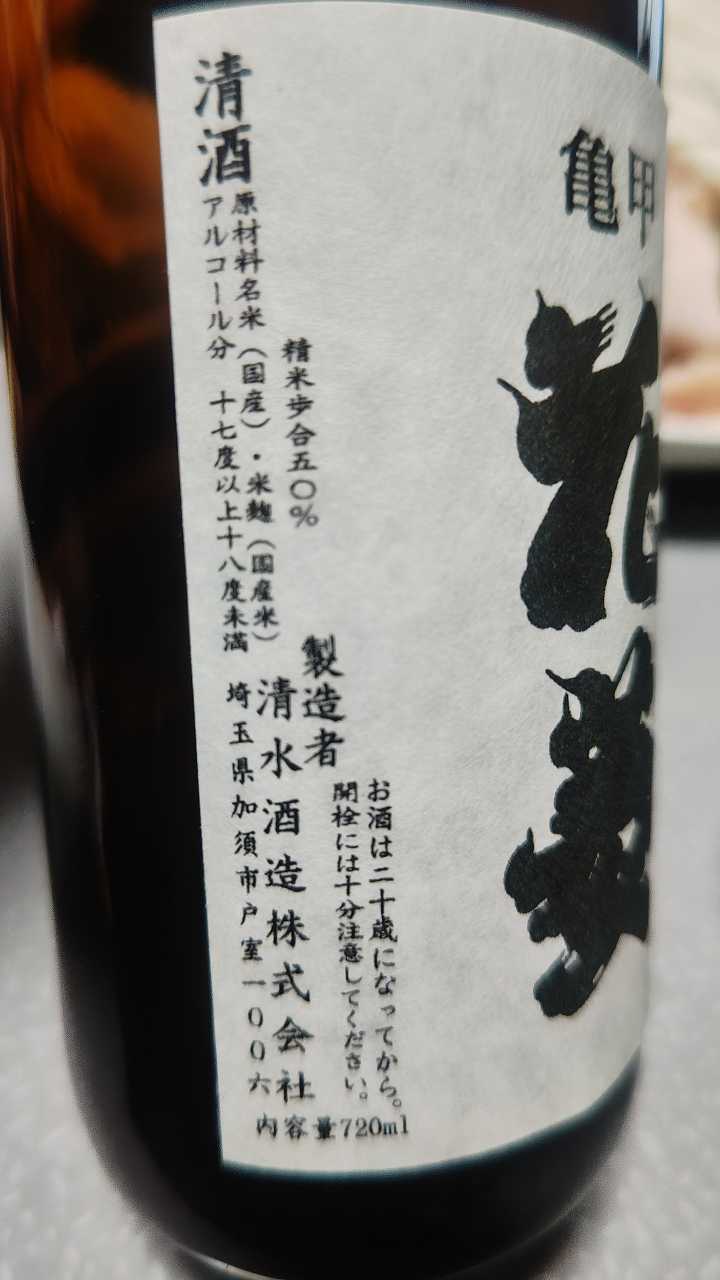 亀甲
花
お酒は二十歳になってから。
開栓には十分注意してください。
精米歩合五〇％
製造者
清水酒造株式会社
埼玉県加須市戸室一〇〇六
清酒
原材料名米（国産）・米麹（国産米）
アルコール分 十七度以上十八度未満
内容量720ml